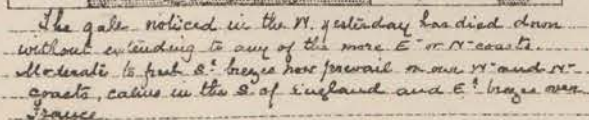 The gale noticed in the W. yesterday has died down
without extending to any of the more E.n or N.n coasts.
Moderate to fresh S.ly breezes now prevail on our W.n and N.n
coasts, calms in the S. of England and E.ly breezes over
France.